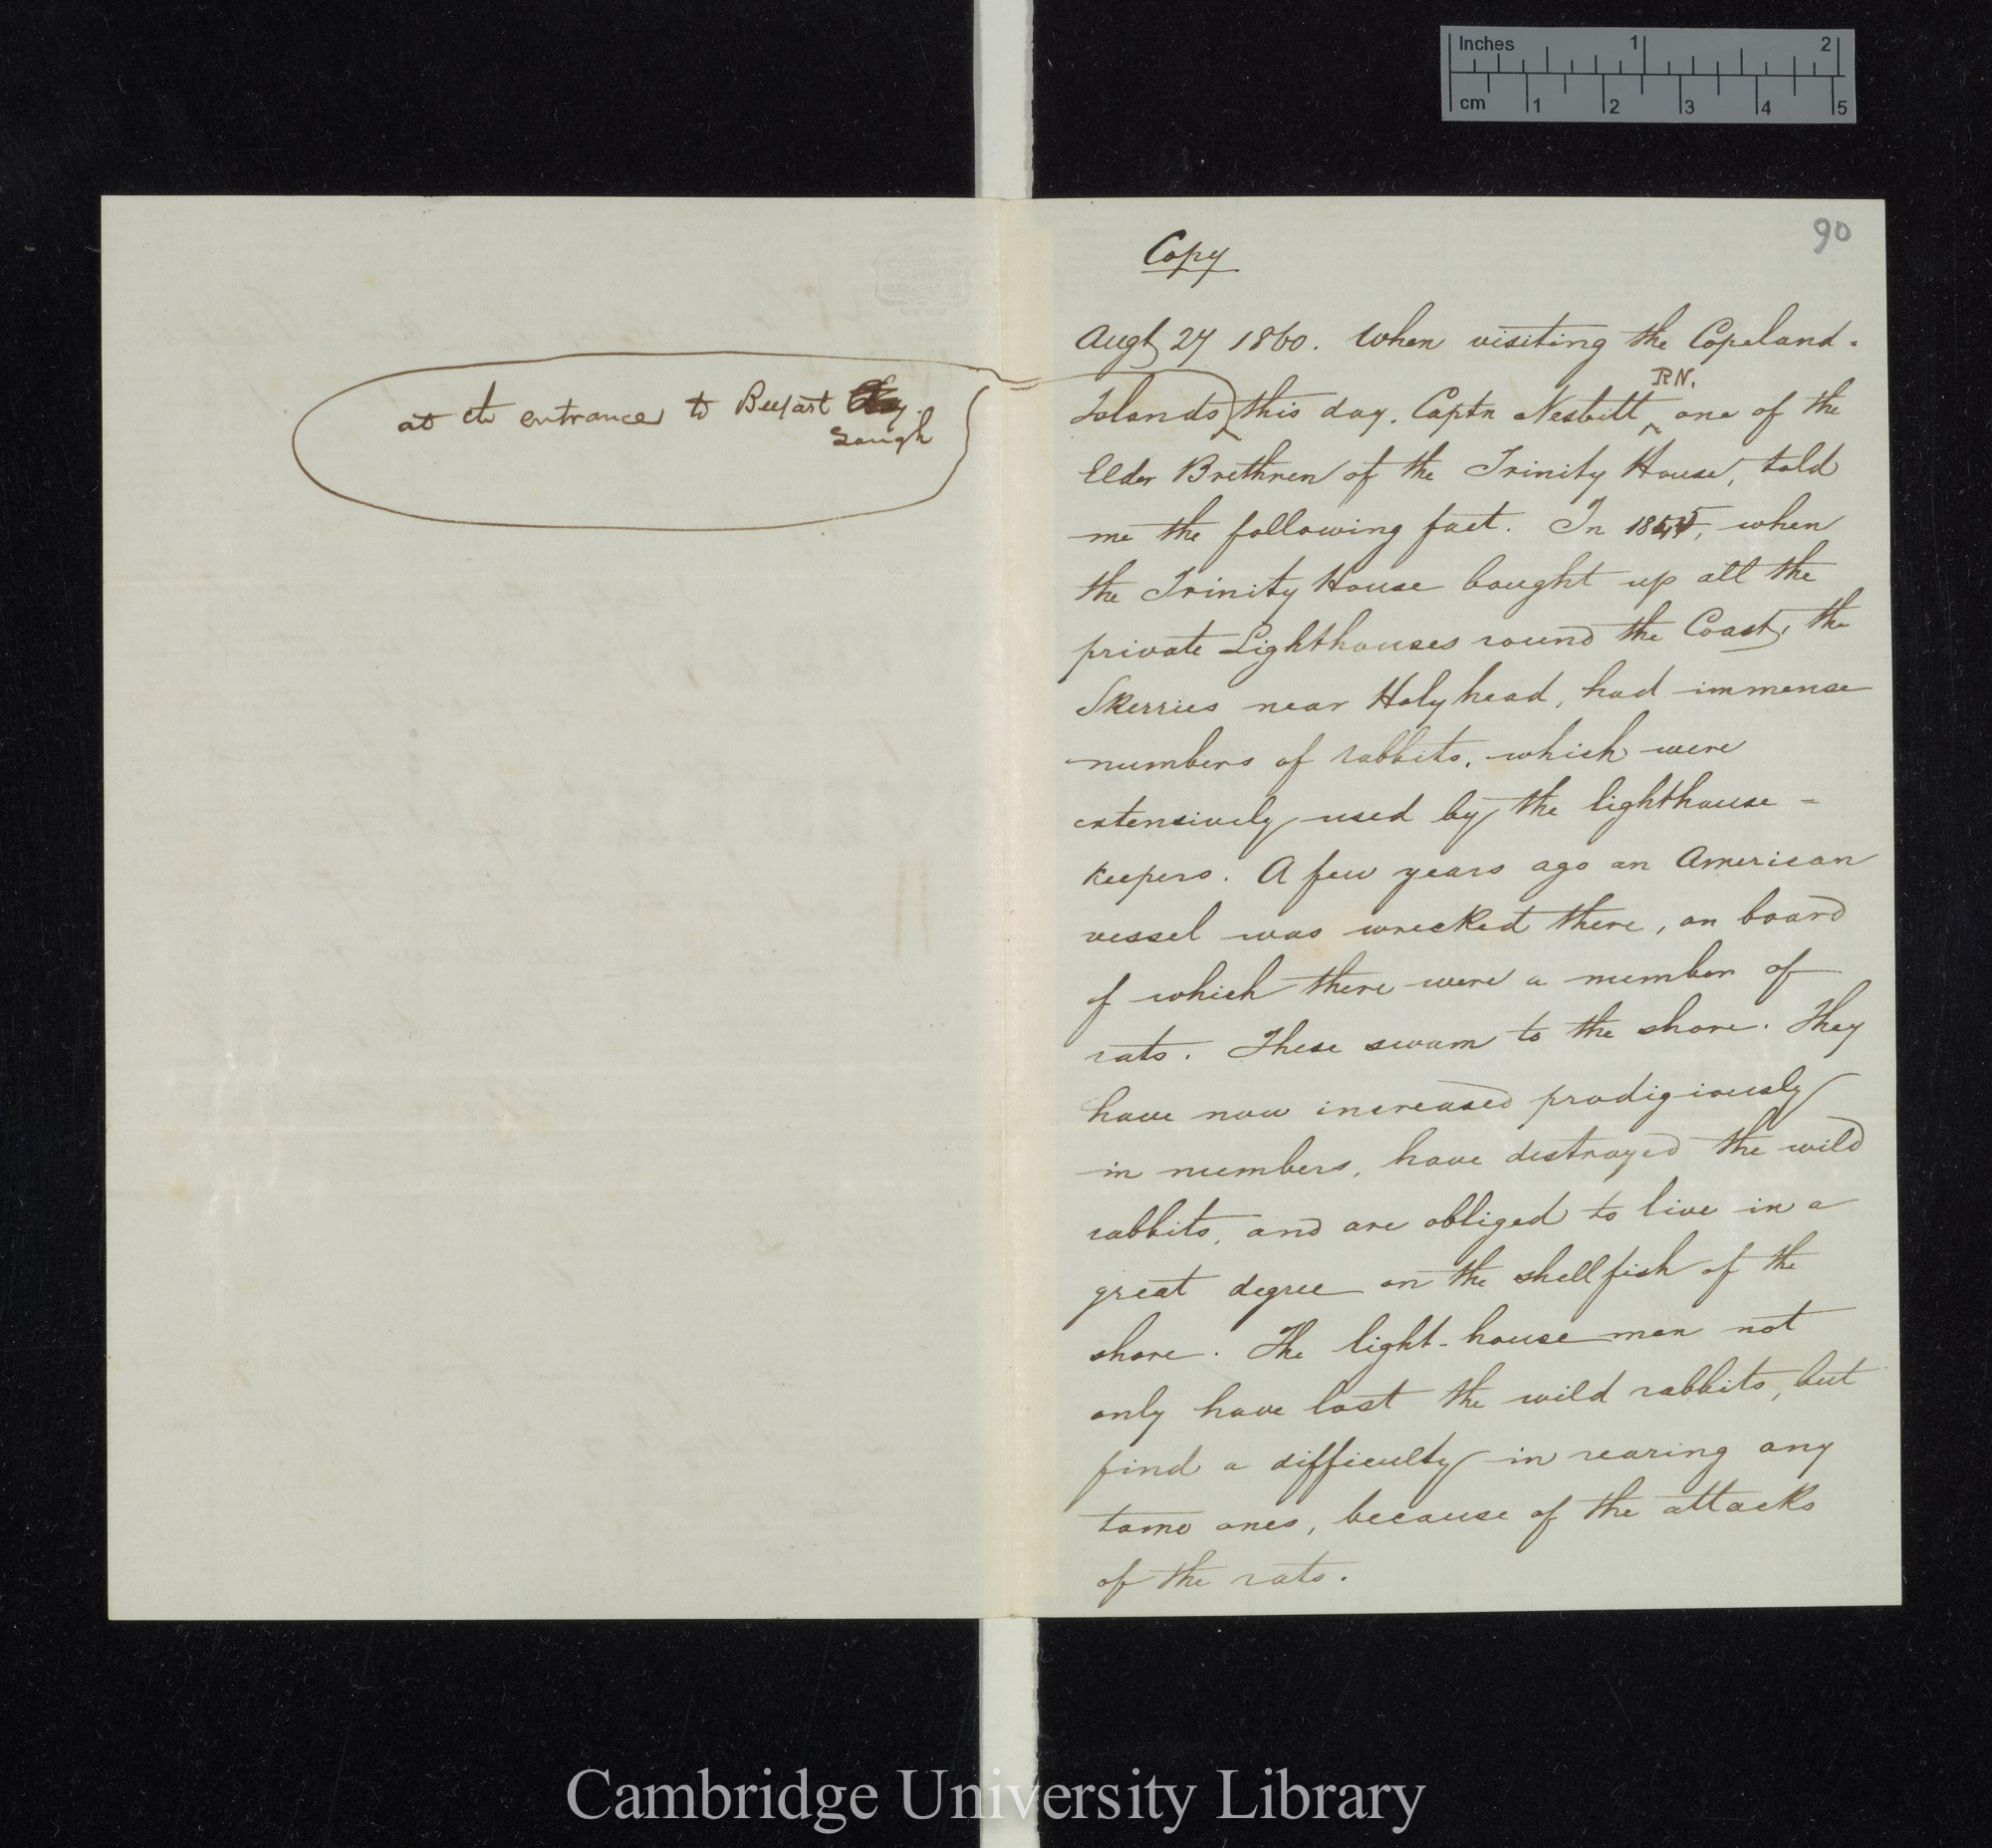 Inches 1 2
cm 1 2 3 4 5
90
at the entrance to Belfast Bay.
Lough
Copy
Augt 27 1860. When visiting the Copeland-
Islands this day. Captn Nesbitt RN. one of the
Elder Brethren of the Trinity House, told
me the following fact. In 1845, when
the Trinity House bought up all the
private Lighthouses round the Coast, the
Skerries near Holyhead, had immense
numbers of rabbits, which were
extensively used by the lighthouse-
keepers. A few years ago an American
vessel was wrecked there, on board
of which there were a number of
rats. These swam to the shore. They
have now increased prodigiously
in numbers, have destroyed the wild
rabbits, and are obliged to live in a
great degree on the shellfish of the
shore. The light-house men not
only have lost the wild rabbits, but
find a difficulty in rearing any
tame ones, because of the attacks
of the rats.
Cambridge University Library